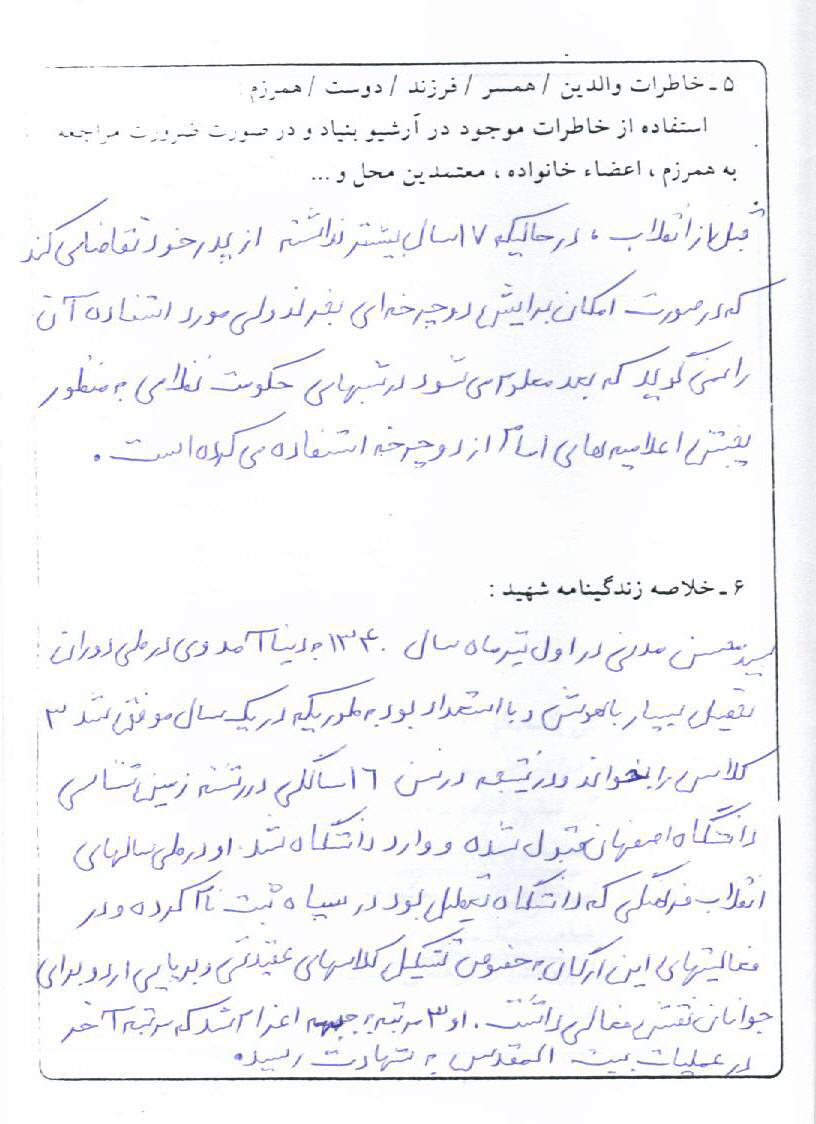 ۵ ـ خاطرات والدین / همسر / فرزند / دوست / همرزم :
استفاده از خاطرات موجود در آرشیو بنیاد و در صورت ضرورت مراجعه
به همرزم ، اعضاء خانواده ، معتمدین محل و ...
قبل از انقلاب ، در حالیکه ۱۷ سال بیشتر نداشته از پدر خود تقاضا می کند
که در صورت امکان برایش دوچرخه ای بخرند ولی مورد استفاده آن
را نمی گوید که بعد معلوم می شود در شبهای حکومت نظامی به منظور
پخش اعلامیه های امام از دوچرخه استفاده می کرده است .
۶ ـ خلاصه زندگینامه شهید :
سید محسن مدنی در اول تیر ماه سال ۱۳۴۰ به دنیا آمد وی در طی دوران
تحصیل بسیار باهوش و با استعداد بود به طوریکه در یک سال موفق شد ۳
کلاس را بخواند و در نتیجه در سن ۱۶ سالگی در رشته زمین شناسی
دانشگاه اصفهان قبول شده و وارد دانشگاه شد . او در طی سالهای
انقلاب فرهنگی که دانشگاه تعطیل بود در سپاه ثبت نام کرده و در
فعالیتهای این ارگان به خصوص تشکیل کلاسهای عقیدتی و برپایی اردو برای
جوانان نقش فعالی داشت . او ۳ مرتبه به جبهه اعزام شد که مرتبه آخر
در عملیات بیت المقدس به شهادت رسید .